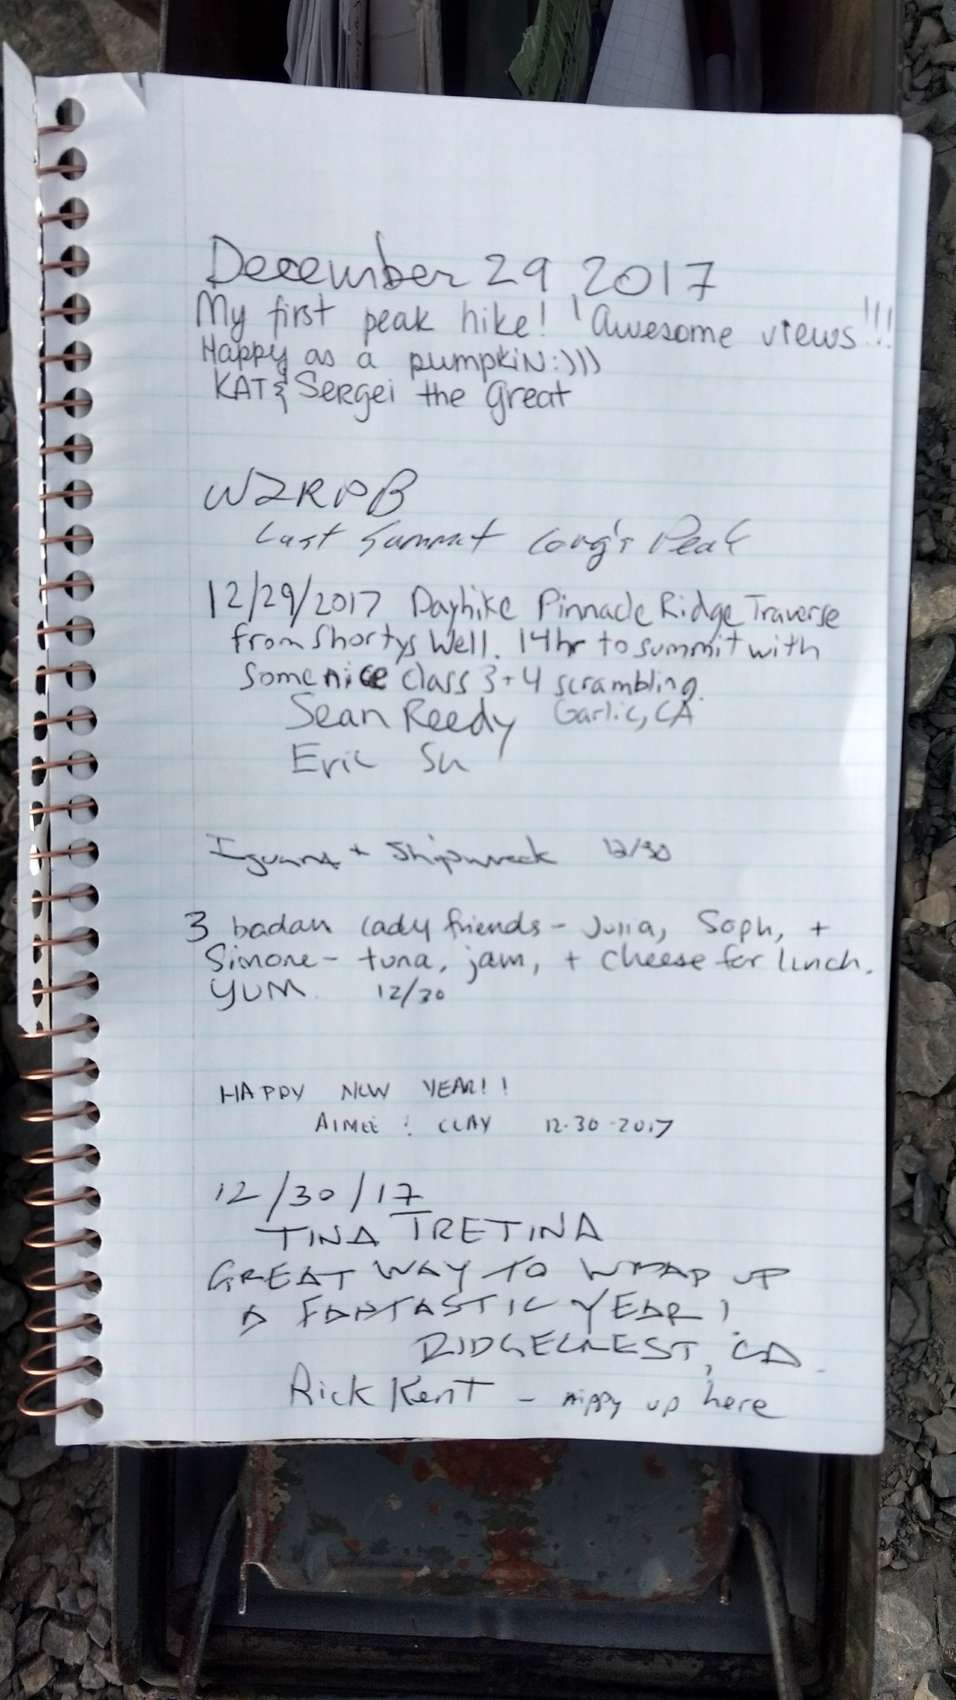 December 29 2017
My first peak hike! Awesome views!!!
Happy as a pumpkin:)))
KAT & Sergei the Great
W2RPB
Last Summit Long's Peak
12/29/2017 Dayhike Pinnacle Ridge Traverse
from Shortys Well. 14hr to summit with
some nice class 3+4 scrambling.
Sean Reedy Garlic, CA
Eric Su
Iguana + Shipwreck 12/30
3 badan lady friends - Julia, Soph, +
Simone - tuna, jam, + cheese for lunch.
YUM. 12/30
HAPPY NEW YEAR!!
AIMEE & CLAY 12-30-2017
12/30/17
TINA TRETINA
GREAT WAY TO WRAP UP
A FANTASTIC YEAR!
RIDGECREST, CA.
Rick Kent - nippy up here